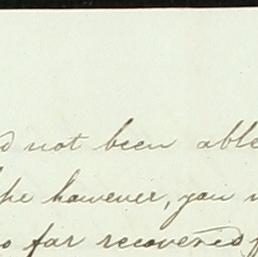 not been able
however, you
so far recovered